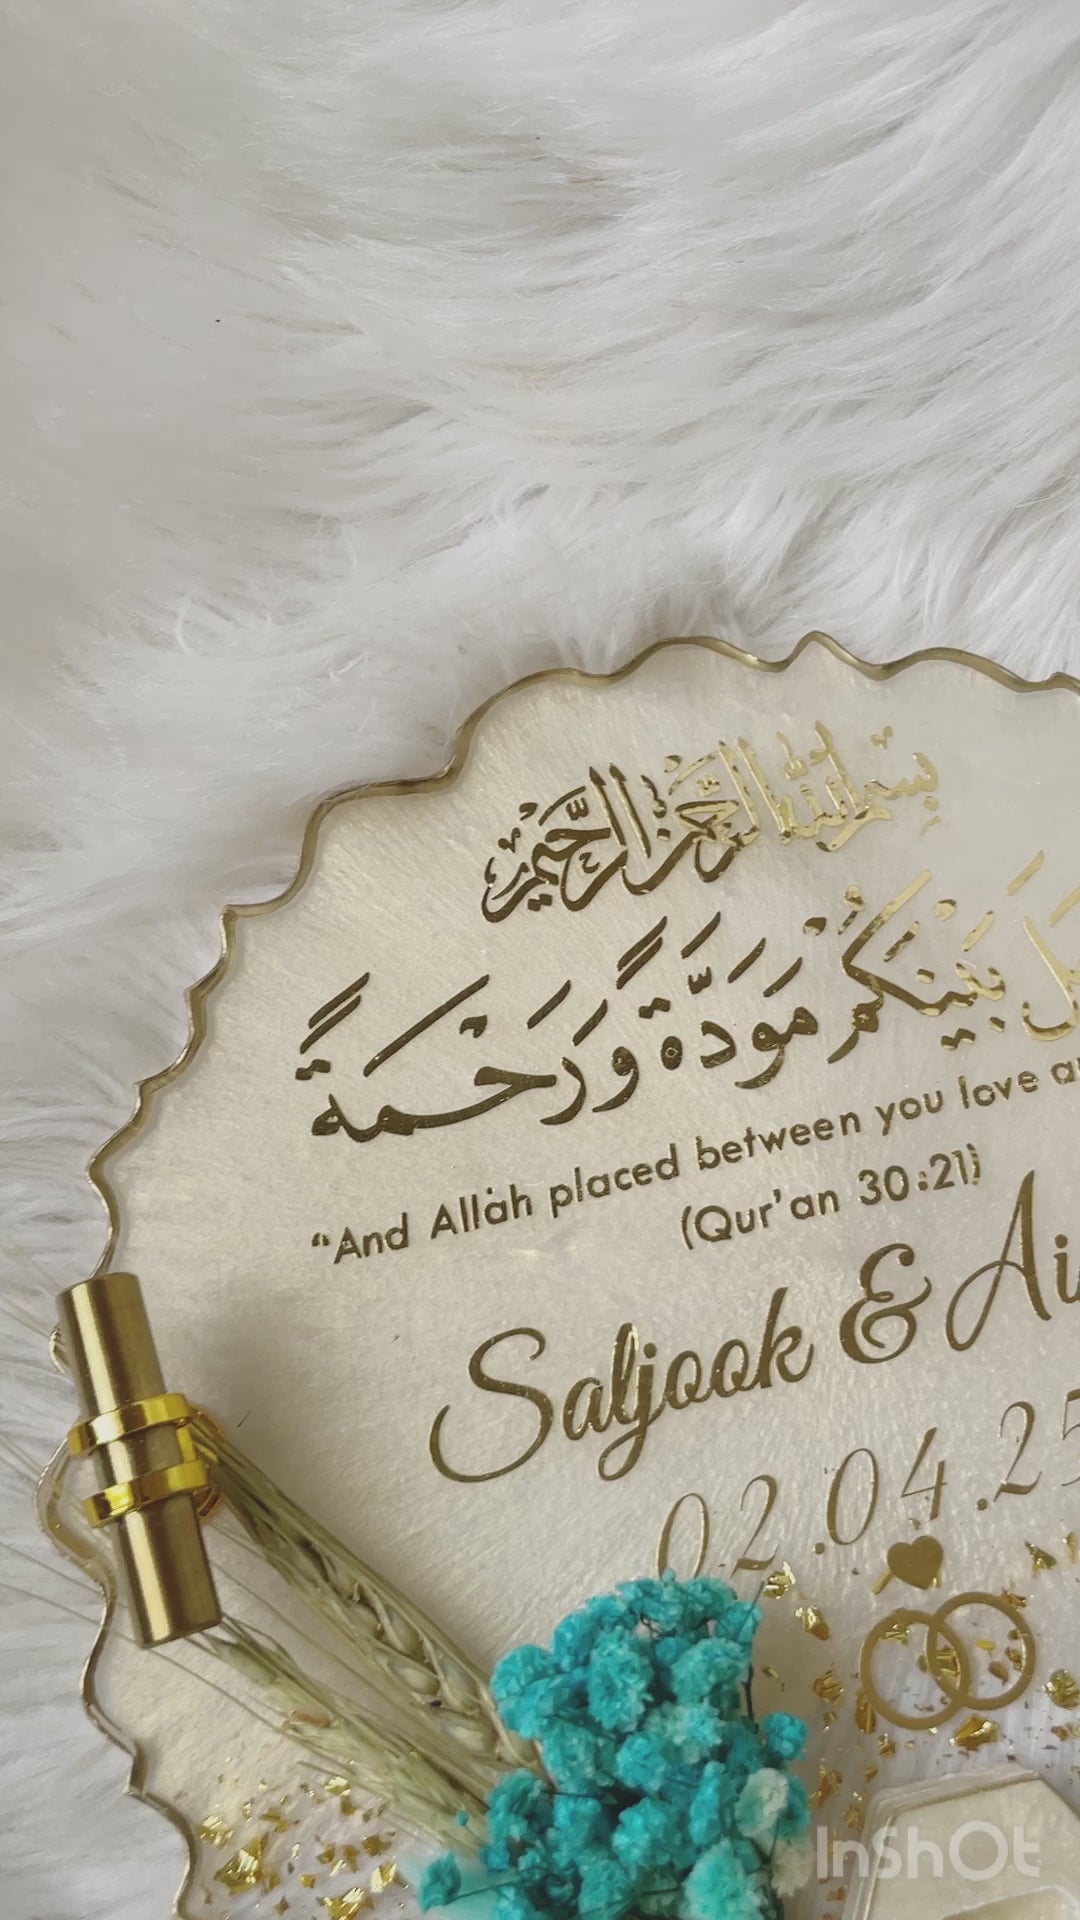 بِسْمِ اللهِ الرَّحْمٰنِ الرَّحِيْمِ
بَيْنَكُمْ مَوَدَّةً وَرَحْمَةً
“And Allah placed between you love
(Qur’an 30:21)
Saljook & Ai
02.04.25
InShOt